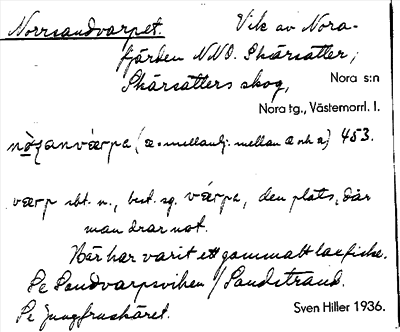 Norrsandvarpet. Vik av Nora-
fjärden NNO. Skärsätter,
Skärsätters skog, Nora s:n
Nora tg., Västernorrl. l.
(æ = mellanlj. mellan æ och a) 453.
værp sbt. n., best. sg. værpa, den plats, där
man drar not.
Här har varit ett gammalt laxfiske.
Se Sandvarpsviken / Sandstrand.
Se Jungfruskäret. Sven Hiller 1936.